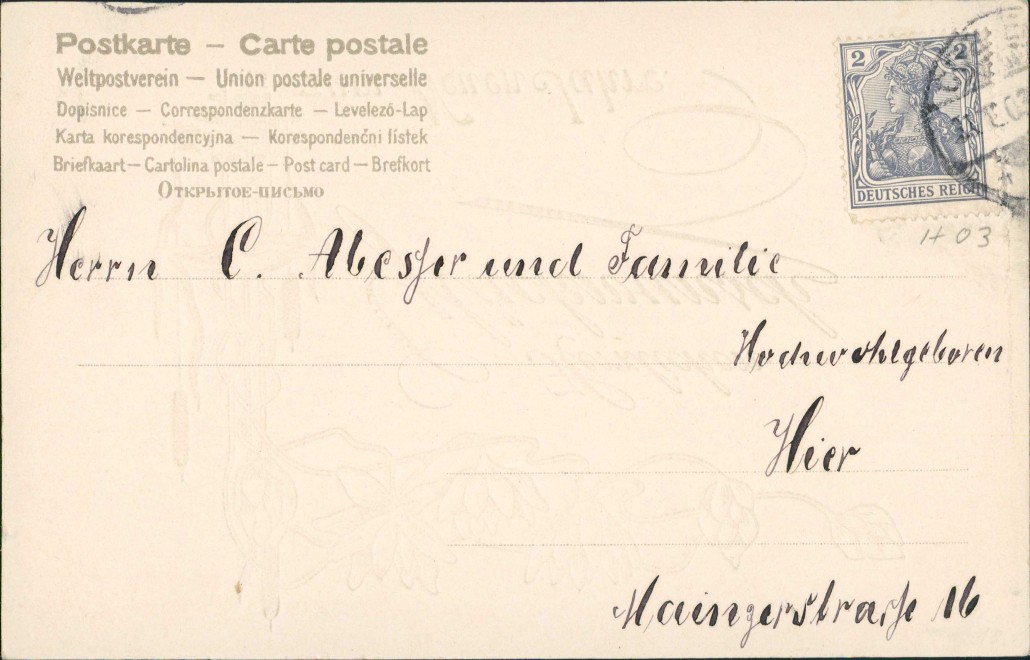 Postkarte – Carte postale
Weltpostverein – Union postale universelle
Dopisnice – Correspondenzkarte – Levelező-Lap
Karta korespondencyjna – Korespondenčni lístek
Briefkaart – Cartolina postale – Post card – Brefkort
Открытое-письмо
2 2
DEUTSCHES REICH
H 03
Herrn C. Abesser und Familie
Hochwohlgeboren
Hier
Maingerstraße 16